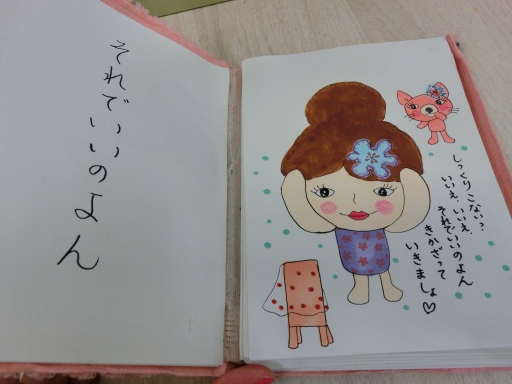 それでいいのよん
しっくりこない?
いいえ、いいえ、
それでいいのよん
きかざって
いきましょ♡